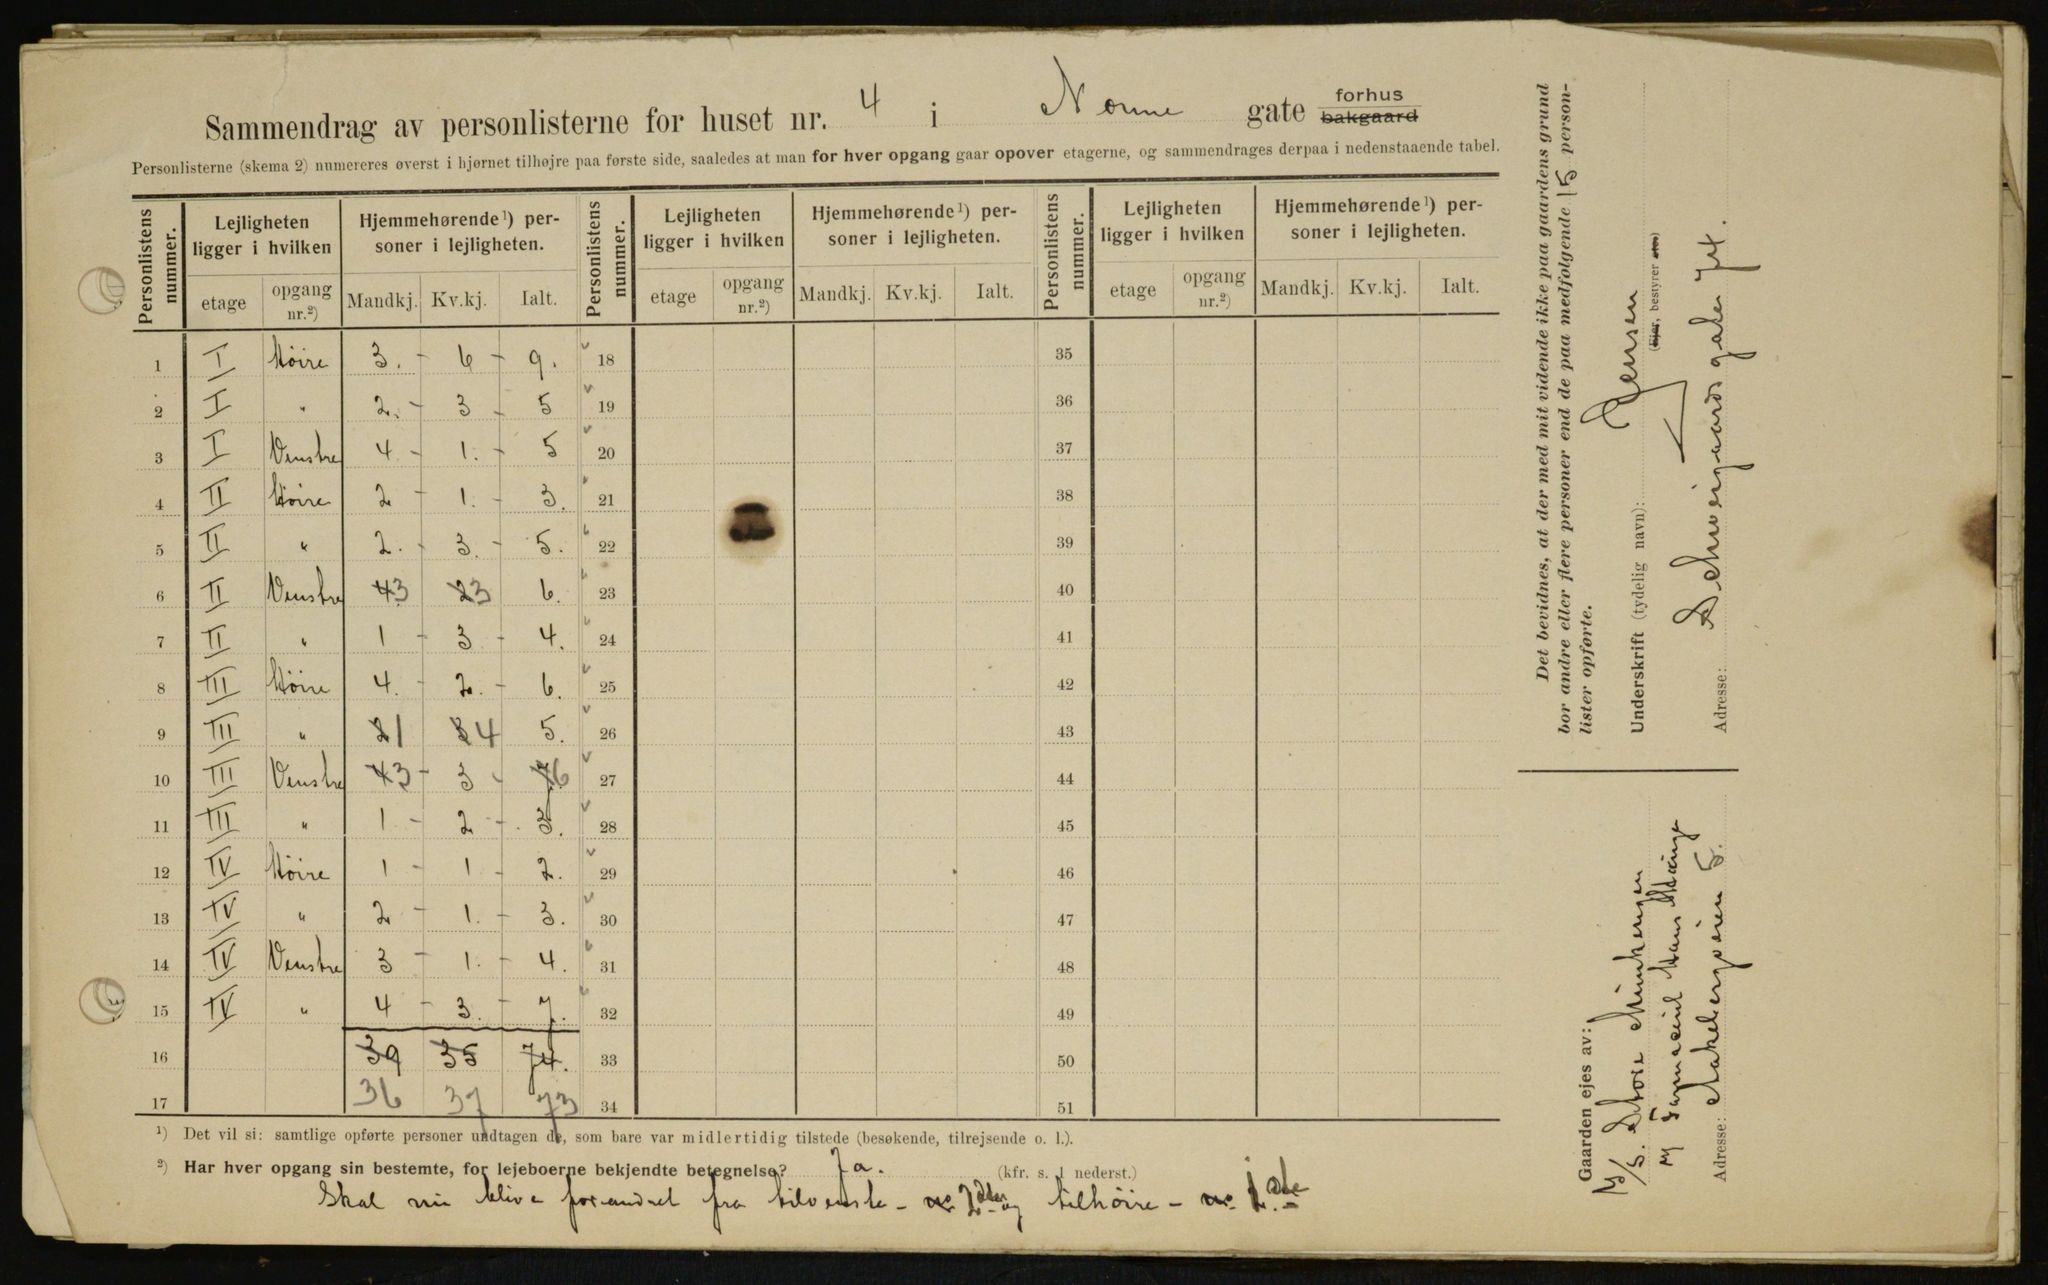 Sammendrag av personlisterne for huset nr. 4 i Norne gate forhus bakgaard
Personlisterne (skema 2) numereres øverst i hjørnet tilhøjre paa første side, saaledes at man for hver opgang gaar opover etagerne, og sammendrages derpaa i nedenstaaende tabel.
Personlistens nummer. Lejligheten ligger i hvilken Hjemmehørende ¹) personer i lejligheten. Personlistens nummer. Lejligheten ligger i hvilken Hjemmehørende ¹) personer i lejligheten. Personlistens nummer. Lejligheten ligger i hvilken Hjemmehørende ¹) personer i lejligheten.
etage opgang nr.²) Mandkj. Kv.kj. Ialt. etage opgang nr.²) Mandkj. Kv.kj. Ialt. etage opgang nr.²) Mandkj. Kv.kj. Ialt.
1 I Høire 3. - 6 - 9. 18 35
2 I " 2. - 3 - 5 19 36
3 I Venstre 4 - 1. - 5 20 37
4 II Høire 2 - 1. - 3. 21 38
5 II " 2. - 3. - 5. 22 39
6 II Venstre 43 23 6. 23 40
7 II " 1 - 3 - 4. 24 41
8 III Høire 4. - 2. - 6. 25 42
9 III " 21 34 5. 26 43
10 III Venstre 43 - 3 - 76 27 44
11 III " 1 - 2 - 3. 28 45
12 IV Høire 1 - 1 - 2. 29 46
13 IV " 2 - 1. - 3. 30 47
14 IV Venstre 3 - 1. - 4. 31 48
15 IV " 4 - 3. - 7. 32 49
16 39 35 74. 33 50
17 36 37 73 34 51
¹) Det vil si: samtlige opførte personer undtagen de, som bare var midlertidig tilstede (besøkende, tilrejsende o. l.).
²) Har hver opgang sin bestemte, for lejeboerne bekjendte betegnelse? Ja. (kfr. s. 1 nederst.)
Skal nu blive forandret fra tilvenste - no 2den og tilhøire - no. 1ste
Det bevidnes, at der med mit vidende ikke paa gaardens grund
bor andre eller flere personer end de paa medfølgende 15 person-
lister opførte.
Underskrift (tydelig navn): Jensen
(Ejer, bestyrer etc.)
Adresse: Schweigaardsgaten 74.
Gaarden ejes av:
Adresse: Aakebergveien 5.